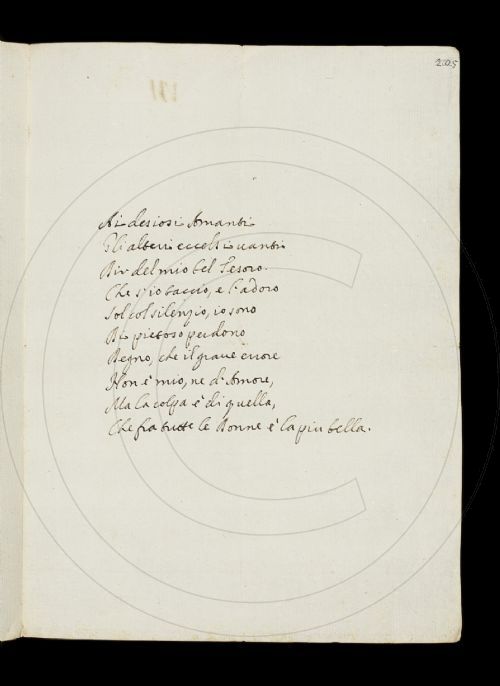 205
Ai desiosi Amanti
Gli alteri eccelsi vanti
Dir del mio bel Tesoro.
Che s'io taccio, e l'adoro
Sol col silenzio, io sono
Di pietoso perdono
Degno, che il grave errore
Non è mio, ne d'Amore,
Ma la colpa è di quella,
Che fra tutte le Donne è la piu bella.